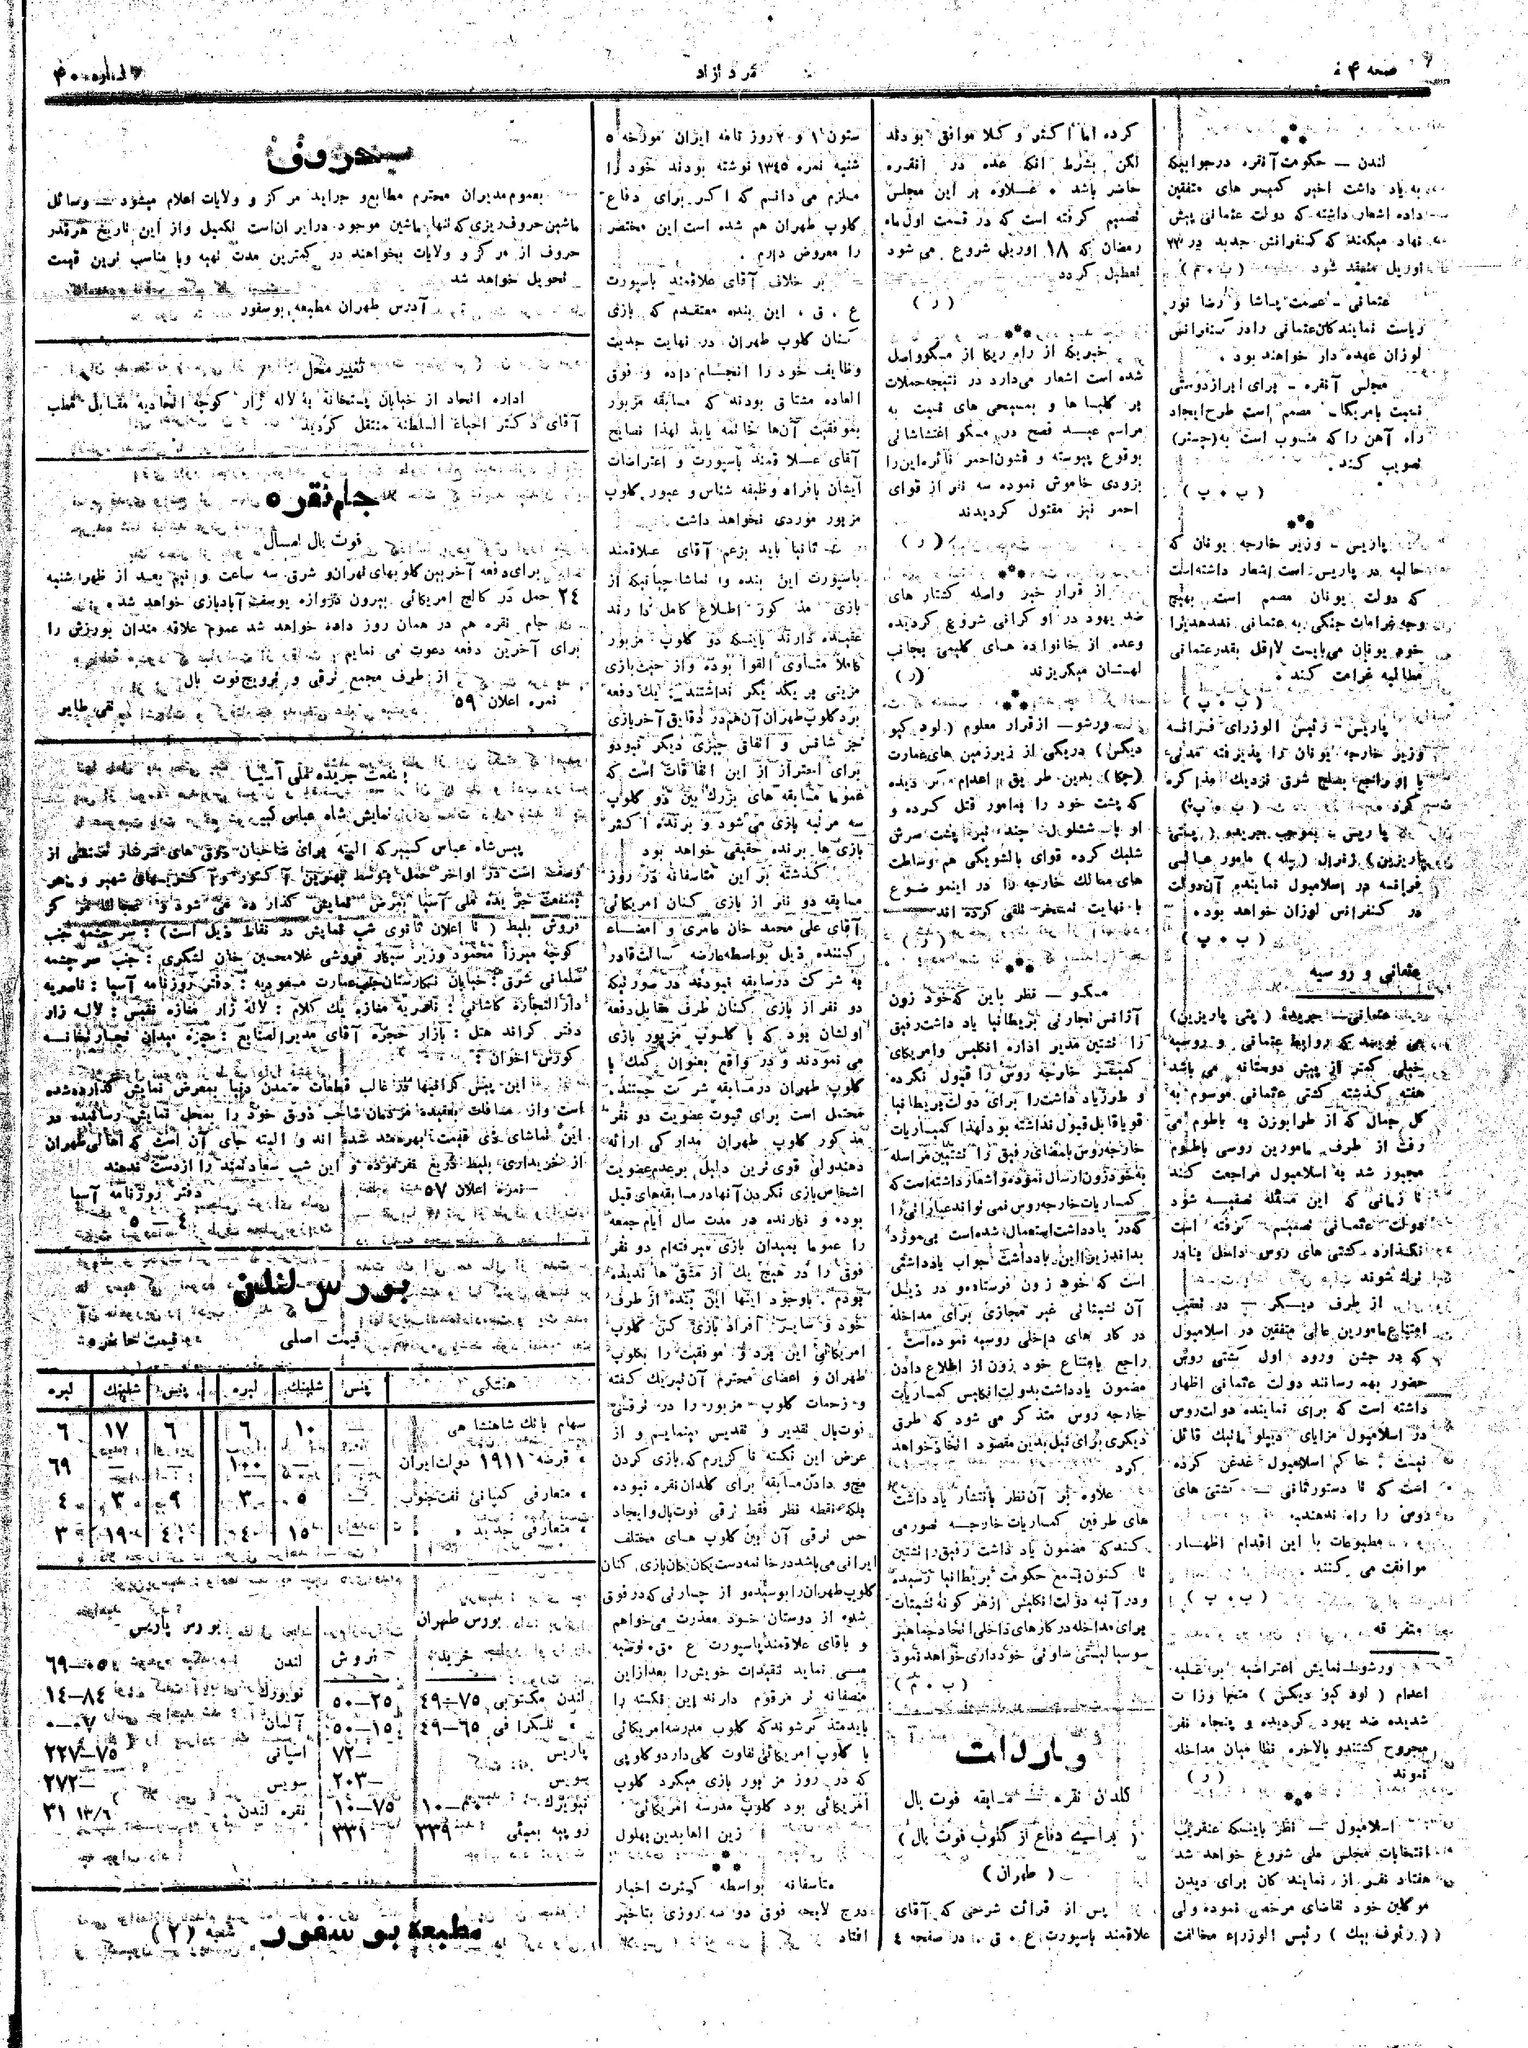 صفحه ۴
مرد آزاد
۴۰
لندن — حکومت آنقره در جوابیکه
به یاد داشت اخیر کمیسر های متفقین
داده اشعار داشته که دولت عثمانی پیش
نهاد میکند که کنفرانس جدید در ۲۳
اوریل منعقد شود (ب . م)
عثمانی - عصمت پاشا و رضا نور
ریاست نمایندگان عثمانی را در کنفرانس
لوزان عهده دار خواهند بود .
مجلس آنقره - برای ابراز دوستی
نسبت بامریکا — مصمم است طرح ایجاد
راه آهن را که منسوب است به (چستر)
تصویب کند .
(ب . پ)
پاریس — وزیر خارجه یونان که
حالیه در پاریس است اشعار داشته است
که دولت یونان مصمم است بهیچ
وجه غرامات جنگی به عثمانی ندهد زیرا
خود یونان می بایست لااقل بقدر عثمانی
مطالبه غرامت کند .
(ب . پ)
پاریس - رئیس الوزرای فرانسه
وزیر خارجه یونان را پذیرفته مدتی
با او راجع بصلح شرق نزدیک مذاکره
کرد (ب . پ)
پاریس — بموجب جریده (پتی
پاریزین) ژنرال (پله) مامور عالی
فرانسه در اسلامبول نماینده آن دولت
در کنفرانس لوزان خواهد بود .
(ب . پ)
عثمانی و روسیه
عثمانی — جریده (پتی پاریزین)
می نویسد که روابط عثمانی و روسیه
خیلی کمتر از پیش دوستانه می باشد
هفته گذشته کشتی عثمانی موسوم به
گل جمال که از طرابوزن به باطوم می
رفت از طرف مامورین روسی باطوم
مجبور شد به اسلامبول مراجعت کند
تا زمانی که این مسئله تصفیه شود
دولت عثمانی تصمیم گرفته است
نگذارد کشتی های روس داخل بنادر
ترک شوند
از طرف دیگر — در تعقیب
امتناع مامورین عالی متفقین در اسلامبول
که در جشن ورود اول کشتی روس
حضور بهم رسانند دولت عثمانی اظهار
داشته است که برای نماینده دولت روس
در اسلامبول مزایای دیپلوماتیک قائل
نیست ؛ حاکم اسلامبول غدغن کرده
است که تا دستور ثانی — کشتی های
روس را راه ندهند .
مطبوعات با این اقدام اظهار
موافقت می کنند
(ب . پ)
متفرقه
ورشو — نمایش اعتراضیه بر علیه
اعدام (لود کیو دیکس) منجا وزات
شدیده ضد یهود گردیده و پنجاه نفر
مجروح گشتند و بالاخره نظامیان مداخله
نمودند (ر)
اسلامبول — نظر باینکه عنقریب
انتخابات مجلس ملی شروع خواهد شد
هفتاد نفر از نمایندگان برای دیدن
موکلین خود تقاضای مرخصی نموده ولی
(رئوف بیک) رئیس الوزراء مخالفت
کرده اما اکثر وکلا موافق بودند
لکن بشرط آنکه عده در آنقره
حاضر باشد . علاوه بر این مجلس
تصمیم گرفته است که در قسمت اول ماه
رمضان که ۱۸ اوریل شروع می شود
تعطیل گردد
(ر)
خبریکه از راه ریگا از مسکو واصل
شده است اشعار می دارد در نتیجه حملات
بر کلیسا ها و بمسیحی های نسبت به
مراسم عید فصح در مسکو اغتشاشاتی
بوقوع پیوسته و قشون احمر نائره این را
بزودی خاموش نموده سه نفر از قوای
احمر نیز مقتول گردیدند
(ر)
از قرار خبر واصله کشتار های
ضد یهود در اوکراین شروع گردیده
وعده از خانواده های کلیمی بجانب
لهستان میگریزند (ر)
ورشو — از قرار معلوم (لود کیو
دیکس) در یکی از زیرزمین های عمارت
(چکا) بدین طریق اعدام گردیده
که پشت خود را بمامور قتل کرده و
او با ششلول چند تیر به پشت سرش
شلیک کرده قوای بالشویکی هم وساطت
های ممالک خارجه را در اینموضوع
با نهایت تمسخر تلقی کرده اند
(ر)
مسکو — نظر باین که خود زون
آژانس تجارتی بریطانیا یاد داشت رفیق
را نشتین مدیر اداره انگلیس و امریکای
کمیسر خارجه روس را قبول نکرده
و طرز یاد داشت را برای دولت بریطانیا
قویا قابل قبول نداشته بود لهذا کمیساریات
خارجه روس بامضای رفیق را نشتین مراسله
به خود زون ارسال نموده و اشعار داشته است که
کمیساریات خارجه روس نمی تواند عباراتی را
که در یادداشت استعمال شده است بی مورد
بداند زیرا این یادداشت جواب یادداشتی
است که خود زون فرستاده و در ذیل
آن تشبثاتی غیر مجازی برای مداخله
در کار های داخلی روسیه نموده است
راجع بامتناع خود زون از اطلاع دادن
مضمون یادداشت بدولت انگلیس کمیساریات
خارجه روس متذکر می شود که طرق
دیگری برای نیل بدین مقصود اتخاذ خواهد
کرد
علاوه بر آن نظر بانتشار یادداشت
های طرفین کمیساریات خارجه تصور می
کند که مضمون یاد داشت رفیق را نشتین
تا کنون بسمع حکومت بریطانیا رسیده
و در آتیه دولت انگلیس از هر گونه تشبثات
برای مداخله در کارهای داخلی اتحاد جماهیر
سوسیالیستی شاوئی خودداری خواهد نمود
(ب . م)
واردات
گلدان نقره — مسابقه فوت بال
(برای دفاع از کلوب فوت بال)
(طهران)
پس از قرائت شرحی که آقای
علاقمند پاسپورت ع . ق . در صفحه ٤
ستون ۱ و ۲ روز نامه ایران مورخه ۵
شنبه نمره ۱۳٤۵ نوشته بودند خود را
ملزم می دانم که اگر برای دفاع
کلوپ طهران هم شده است این مختصر
را معروض دارم .
بر خلاف آقای علاقمند پاسپورت
ع . ق . این بنده معتقدم که بازی
کنان کلوپ طهران در نهایت جدیت
وظایف خود را انجام داده و فوق
العاده مشتاق بودند که مسابقه مزبور
بموفقیت آن‌ها خاتمه یابد لهذا نصایح
آقای علاقمند پاسپورت و اعتراضات
ایشان بافراد وظیفه شناس و غیور کلوپ
مزبور موردی نخواهد داشت
ثانیا باید بزعم آقای علاقمند
پاسپورت این بنده و تماشاچیانیکه از
بازی مذکور اطلاع کامل دارند
عقیده دارند باینکه دو کلوپ مزبور
کاملا متساوی القوا بوده و از حیث بازی
مزیتی بر یکدیگر نداشتند : یک دفعه
برد کلوپ طهران آن هم در دقایق آخر بازی
جز شانس و اتفاق چیزی دیگر نبود و
برای احتراز از این اتفاقات است که
عموما مسابقه های بزرگ بین دو کلوپ
سه مرتبه بازی می شود و برنده اکثر
بازی ها برنده حقیقی خواهد بود
گذشته بر این متاسفانه در روز
مسابقه دو نفر از بازی کنان امریکائی
آقای علی محمد خان عامری و امضاء
کننده ذیل بواسطه عارضه کسالت قادر
به شرکت در مسابقه نبودند در صورتیکه
دو نفر از بازی کنان طرف مقابل دفعه
اولشان بود که با کلوپ مزبور بازی
می نمودند و در واقع بعنوان کمک با
کلوپ طهران در مسابقه شرکت جستند .
محتمل است برای ثبوت عضویت دو نفر
مذکور کلوپ طهران مدارکی ارائه
دهند ولی قوی ترین دلیل بر عدم عضویت
اشخاص بازی نکردن آنها در مسابقه های قبل
بوده و نگارنده در مدت سال ایام جمعه
را عموما بمیدان بازی میرفته ام دو نفر
فوق را در هیچ یک از مشق ها ندیده
بودم . باوجود اینها این بنده از طرف
خود و سایر افراد بازی کن کلوپ
امریکائی این برد و موفقیت را بکلوپ
طهران و اعضای محترم آن تبریک گفته
و زحمات کلوپ مزبور را در ترقی
فوت بال تقدیر و تقدیس مینمایم و از
عرض این نکته ناگزیرم که بازی کردن
مچ و دادن مسابقه برای گلدان نقره نبوده
بلکه نقطه نظر فقط ترقی فوت بال و ایجاد
حس ترقی آن بین کلوپ های مختلف
ایرانی می باشد در خاتمه دست یکان یکان بازی کنان
کلوپ طهران را بوسیده و از جسارتی که در فوق
شده از دوستان خود معذرت می خواهم
و باقای علاقمند پاسپورت ع . ق . توصیه
می نماید تنقیدات خویش را بعد از این
منصفانه تر مرقوم دارند این نکته را
باید متذکر شوند که کلوپ مدرسه امریکائی
با کلوپ امریکائی تفاوت کلی دارد و کلوپی
که در روز مزبور بازی میکرد کلوپ
امریکائی بود کلوپ مدرسه امریکائی
زین العابدین بهلول
متاسفانه بواسطه کثرت اخبار
درج لایحه فوق دو سه روزی بتاخیر
افتاد
بعموم مدیران محترم مطابع و جراید مرکز و ولایات اعلام میشود — وسائل
ماشین حروف ریزی که تنها ماشین موجود در ایران است تکمیل و از این تاریخ هر قدر
حروف از مرکز و ولایات بخواهند در کمترین مدت تهیه و با مناسب ترین قیمت
تحویل خواهد شد
آدرس طهران مطبعه بوسفور
تغییر محل
اداره اتحاد از خیابان پستخانه به لاله زار کوچه اتحادیه مقابل مطب
آقای دکتر احیاء السلطنه منتقل گردید
جام نقره
فوت بال امسال
برای دفعه آخر بین کلوبهای تهران و شرق سه ساعت و نیم بعد از ظهر شنبه
۲٤ حمل در کالج امریکائی بیرون دروازه یوسف آباد بازی خواهد شد
جام نقره هم در همان روز داده خواهد شد عموم علاقه مندان بورزش را
برای آخرین دفعه دعوت می نمایم
از طرف مجمع ترقی و ترویج فوت بال
نمره اعلان ۵۹
بمنفعت جریده ملی آسیا
نمایش شاه عباس کبیر
پیس شاه عباس کبیر که البته برای صاحبان ذوق های سرشار مستغنی از
وصف است در اواخر حمل بتوسط بهترین آکتور و آکتریسهای شهیر و ماهر
بمنفعت جریده ملی آسیا بمعرض نمایش گذارده می شود و محل مرکز
فروش بلیط (تا اعلان ثانوی شب نمایش در نقاط ذیل است) : سرچشمه جنب
کوچه میرزا محمود وزیر سیگار فروشی غلامحسین خان لشکری : جنب سرچشمه
سلمانی شرق : خیابان نگارستان جنب عمارت مسعودیه : دفتر روزنامه آسیا : ناصریه
دار التجاره کاشانی : ناصریه مغازه یک کلام : لاله زار مغازه نفیس : لاله زار
دفتر گراند هتل : بازار حجره آقای مدیر الصنایع : سبزه میدان تجارتخانه
کورس اخوان :
این پیس گرانبها در غالب قطعات متمدن دنیا بمعرض نمایش گذارده شده
است و از مسافات بعیده مردمان صاحب ذوق خود را بمحل نمایش رسانیده در
این تماشای ذی قیمت بهره مند شده اند و البته جای آن است که اهالی طهران
از خریداری بلیط دریغ نفرموده و این شب سعادتمند را از دست ندهند
نمره اعلان ۵۷
دفتر روزنامه آسیا
٤ — ۵
بورس لندن
قیمت اصلی
قیمت حاضره
هفتگی پنس شلینک لیره پنس شلینک لیره
سهام بانک شاهنشاهی — ۱۰ ۶ ۶ ۱۷ ۶
قرضه ۱۹۱۱ دولت ایران — — ۱۰۰ — — ۶۹
متعارفی کمپانی نفت جنوب — ۰۵ ۳۰ ۹ ۳۰ ٤
متعارفی جدید ۱۵ ٤۰ ۱۹ ۳
بورس طهران
خرید فروش
لندن مکتوبی ۷۵—٤۹ ۲۵—۵۰
تلگرافی ۶۵—٤۹ ۱۵—۵۰
پاریس ۷۲—
سویس ۲۰۳—
نیویورک ۱۰ ۷۵—۱۰
روپیه بمبئی ۳۳۹ ۳۳۱
بورس پاریس
لندن ۰۵—۶۹
نیویورک ۸٤—۱٤
آلمان ۰۷—۰
اسپانی ۷۵—۲۲۷
سویس —۲۷۲
نقره لندن ۱۳/۶ ۳۱
مطبعه بوسفور شعبه (۲)